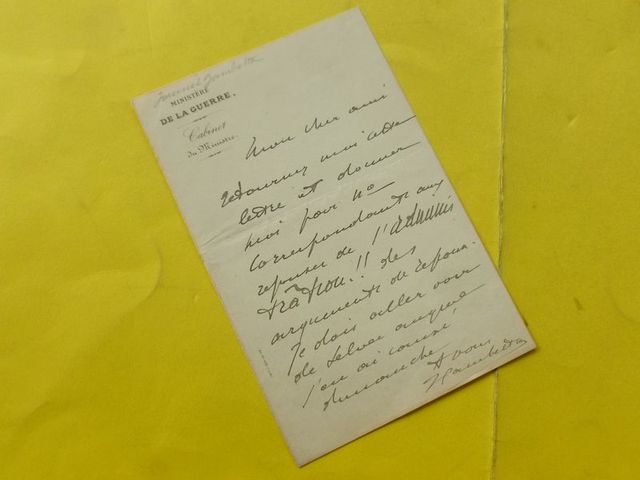 MINISTÈRE
DE LA GUERRE.
Cabinet
du Ministre.
Mon cher ami
retournez moi cette
lettre et donner
moi pour no
correspondants aux
reponses de l'adminis
tration!! des
arguments de repons.
Je dois aller voir
de auquel
j'en ai causé,
dimanche
A vous
Gambetta